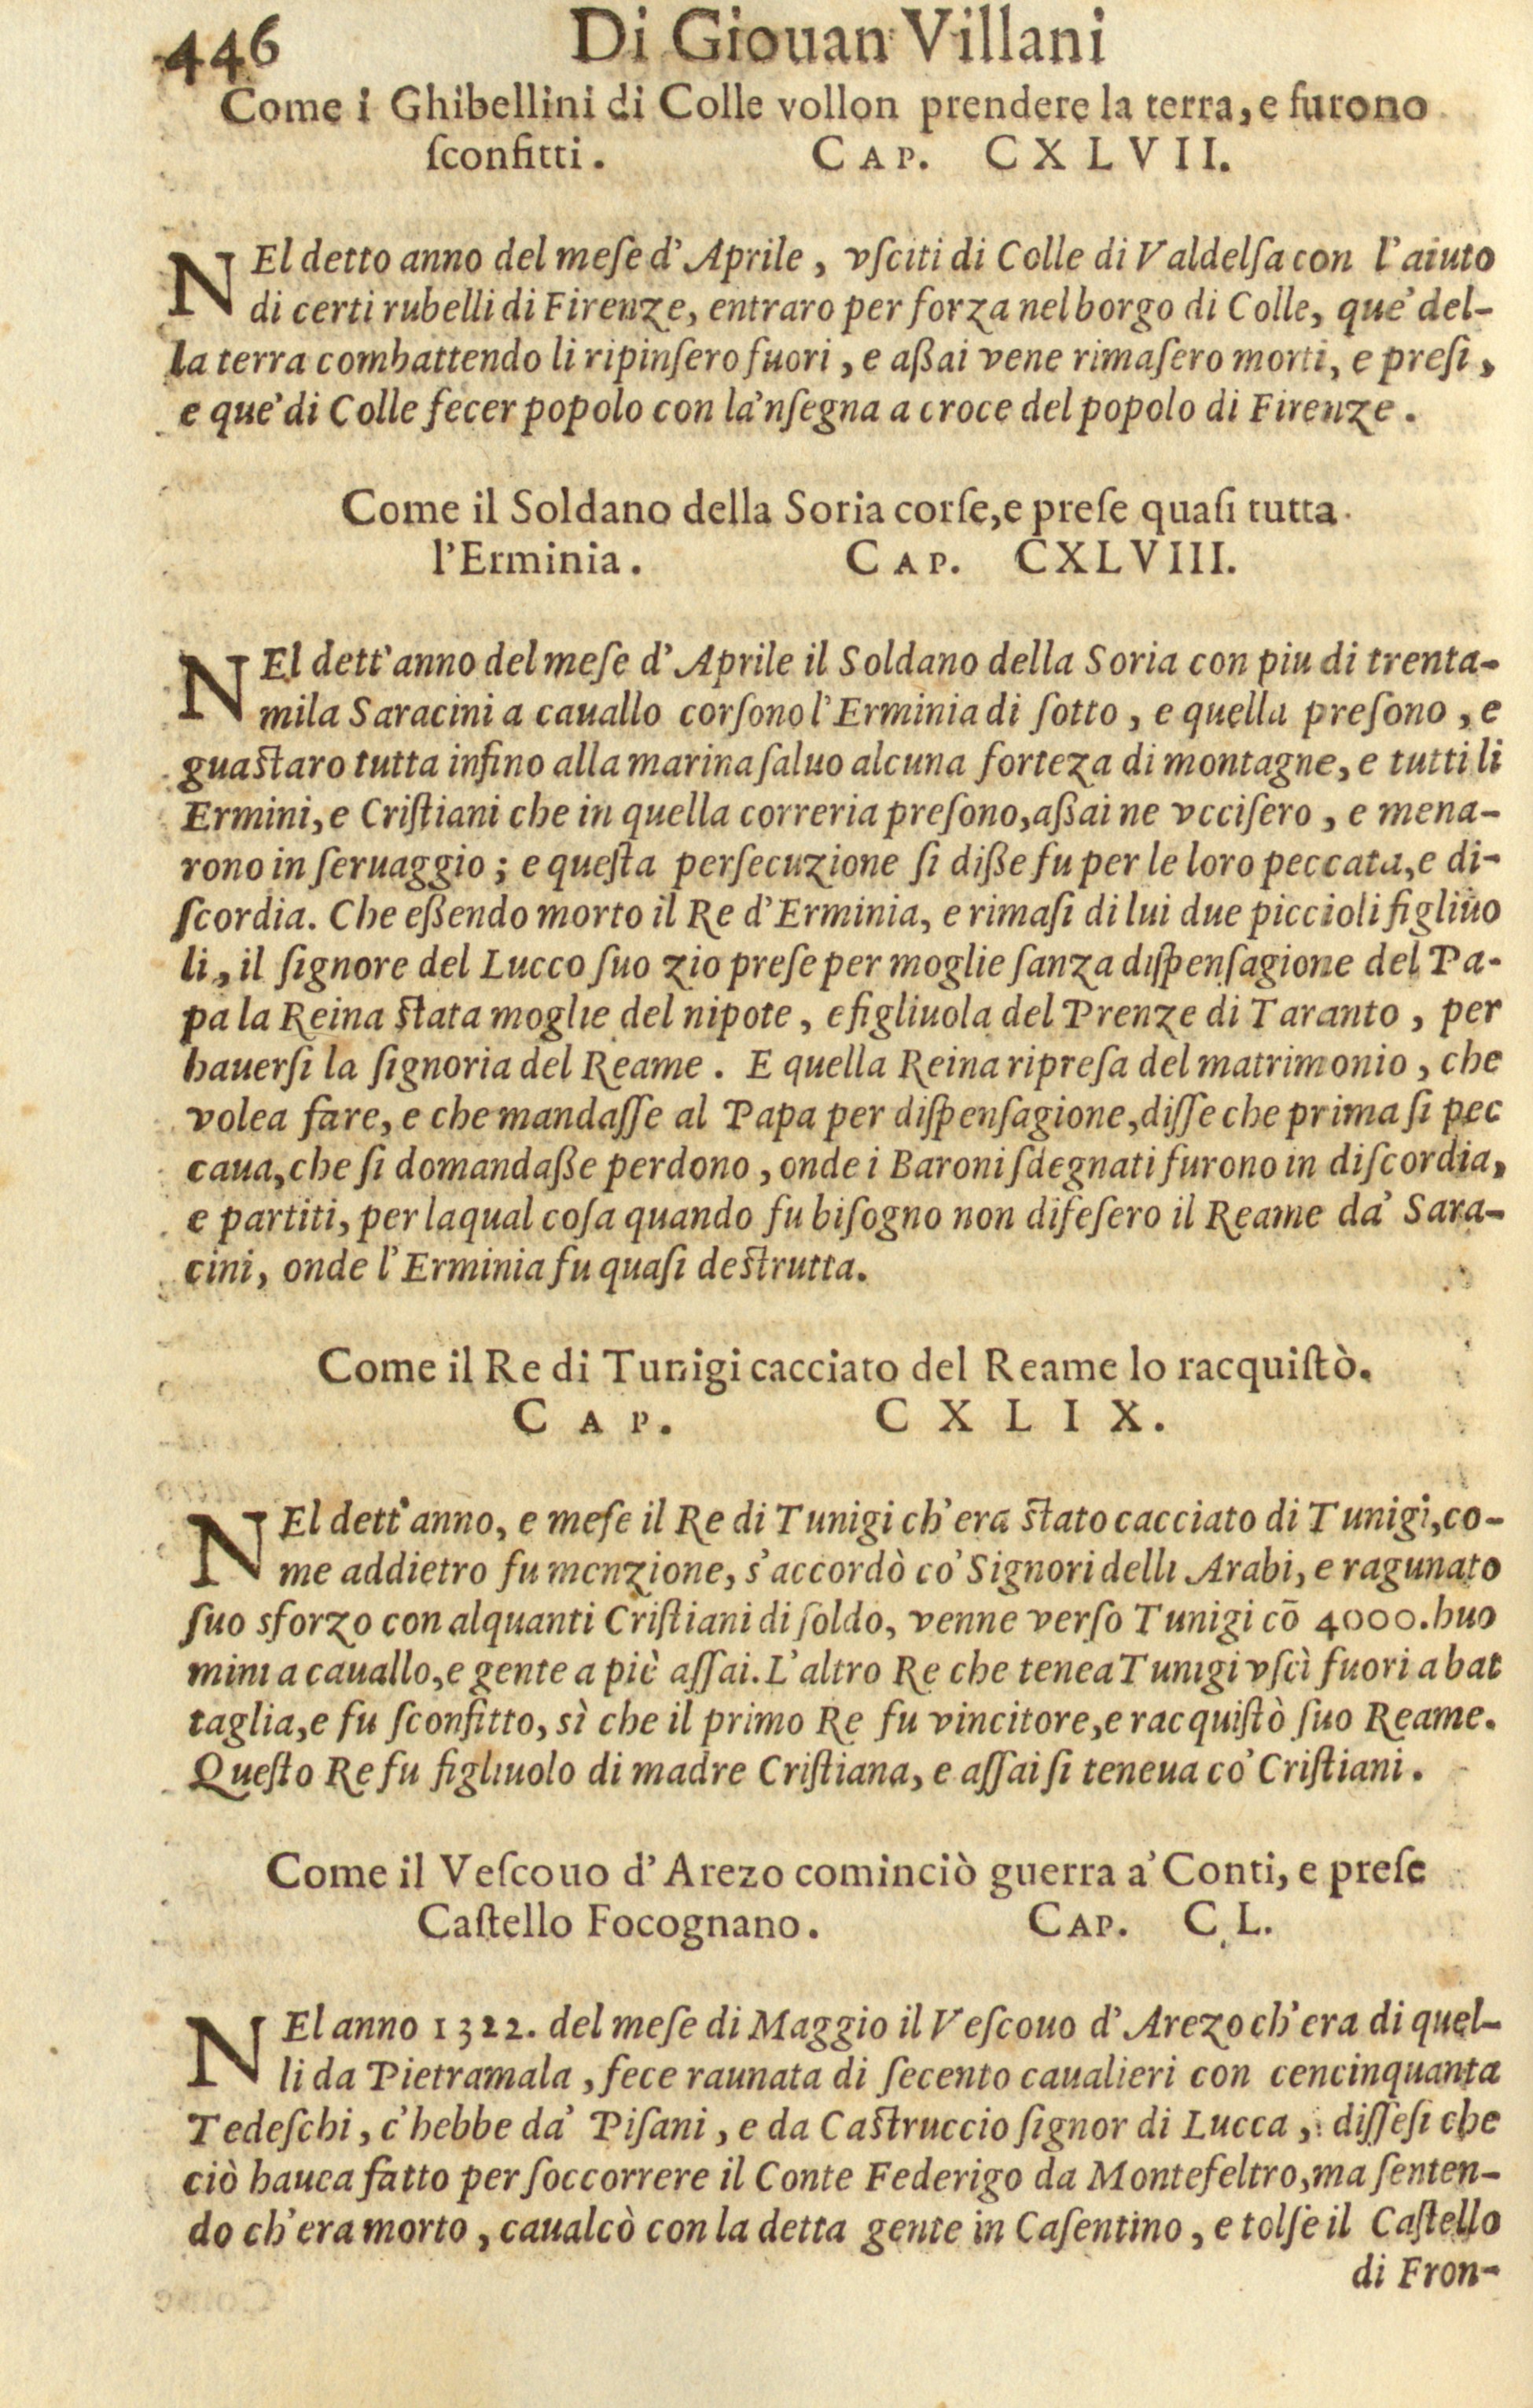 446 Di Giouan Villani
Come i Ghibellini di Colle vollon prendere la terra, e furono
ſconfitti. CAP. CXLVII.
NEl detto anno del meſe d'Aprile, vſciti di Colle di Valdelſa con l'aiuto
di certi rubelli di Firenze, entraro per forza nel borgo di Colle, que' del-
la terra combattendo li ripinſero fuori, e aßai vene rimaſero morti, e preſi,
e que' di Colle fecer popolo con la'nſegna a croce del popolo di Firenze.
Come il Soldano della Soria corſe, e preſe quaſi tutta
l'Erminia. CAP. CXLVIII.
NEl dett'anno del meſe d'Aprile il Soldano della Soria con piu di trenta-
mila Saracini a cauallo corſono l'Erminia di ſotto, e quella preſono, e
guaſtaro tutta infino alla marina ſaluo alcuna forteza di montagne, e tutti li
Ermini, e Criſtiani che in quella correria preſono, aßai ne vcciſero, e mena-
rono in ſeruaggio; e queſta perſecuzione ſi diße fu per le loro peccata, e di-
ſcordia. Che eßendo morto il Re d'Erminia, e rimaſi di lui due piccioli figliuo
li, il ſignore del Lucco ſuo zio preſe per moglie ſanza diſpenſagione del Pa-
pa la Reina ſtata moglie del nipote, e figliuola del Prenze di Taranto, per
hauerſi la ſignoria del Reame. E quella Reina ripreſa del matrimonio, che
volea fare, e che mandaſſe al Papa per diſpenſagione, diſſe che prima ſi pec
caua, che ſi domandaße perdono, onde i Baroni ſdegnati furono in diſcordia,
e partiti, per laqual coſa quando fu biſogno non difeſero il Reame da' Sara-
cini, onde l'Erminia fu quaſi deſtrutta.
Come il Re di Tunigi cacciato del Reame lo racquiſtò.
CAP. CXLIX.
NEl dett'anno, e meſe il Re di Tunigi ch'era ſtato cacciato di Tunigi, co-
me addietro fu menzione, s'accordò co' Signori delli Arabi, e ragunato
ſuo sforzo con alquanti Criſtiani di ſoldo, venne verſo Tunigi cō 4000. huo
mini a cauallo, e gente a piè aſſai. L'altro Re che tenea Tunigi vſcì fuori a bat
taglia, e fu ſconfitto, sì che il primo Re fu vincitore, e racquiſtò ſuo Reame.
Queſto Re fu figliuolo di madre Criſtiana, e aſſai ſi teneua co' Criſtiani.
Come il Veſcouo d'Arezo cominciò guerra a' Conti, e preſe
Caſtello Focognano. CAP. CL.
NEl anno 1322. del meſe di Maggio il Veſcouo d'Arezo ch'era di quel-
li da Pietramala, fece raunata di ſecento caualieri con cencinquanta
Tedeſchi, c'hebbe da' Piſani, e da Caſtruccio ſignor di Lucca, diſſeſi che
ciò hauea fatto per ſoccorrere il Conte Federigo da Montefeltro, ma ſenten-
do ch'era morto, caualcò con la detta gente in Caſentino, e tolſe il Caſtello
di Fron-